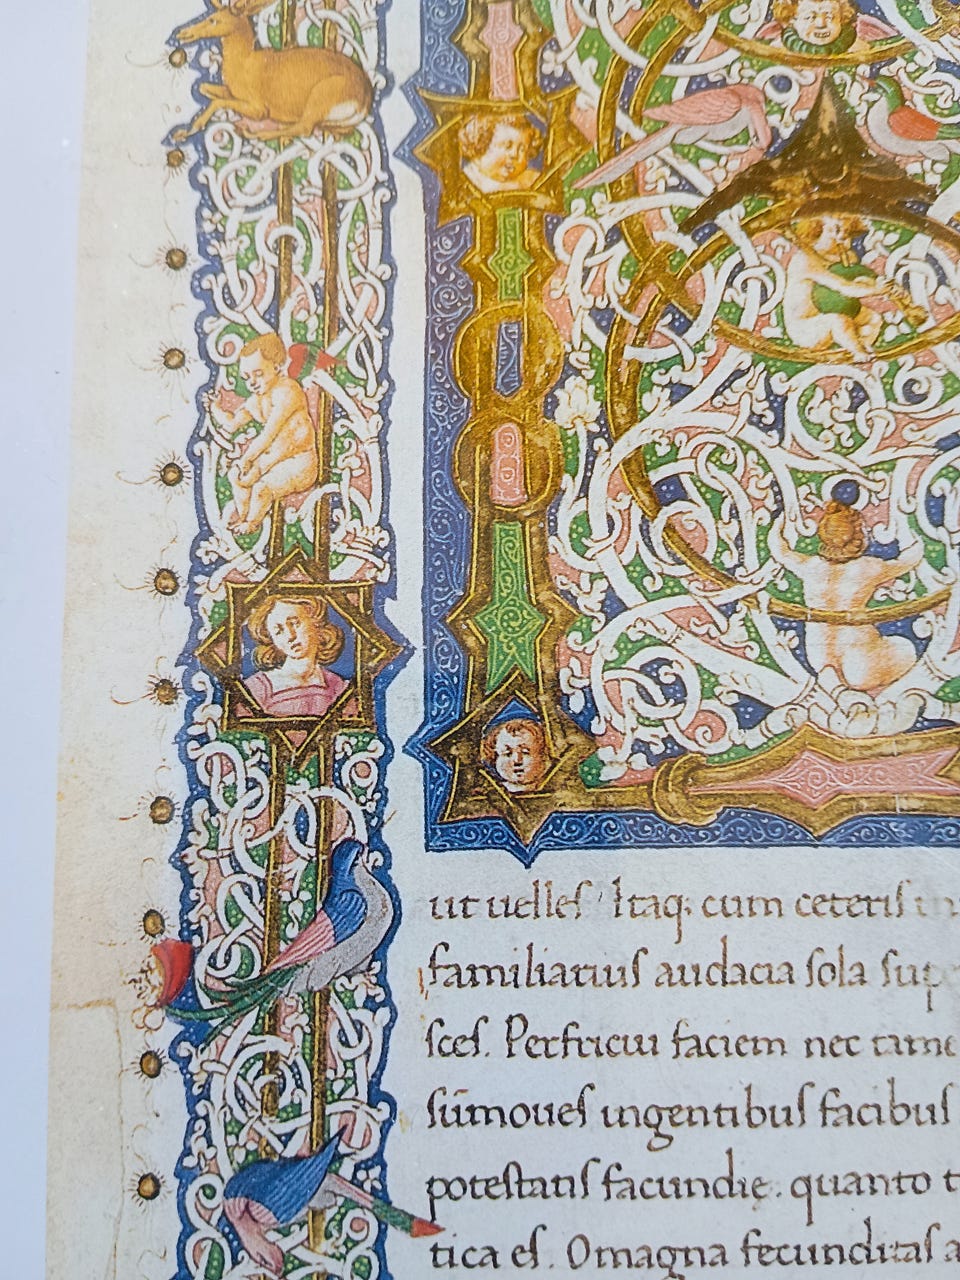 ut uelles Itaq; cum ceteris in
familiarius audacia sola sup
sces. Perfricui faciem nec tame
sūmoues ingentibus facibus
potestatis facundię. quanto t
tica es. O magna fecunditas a